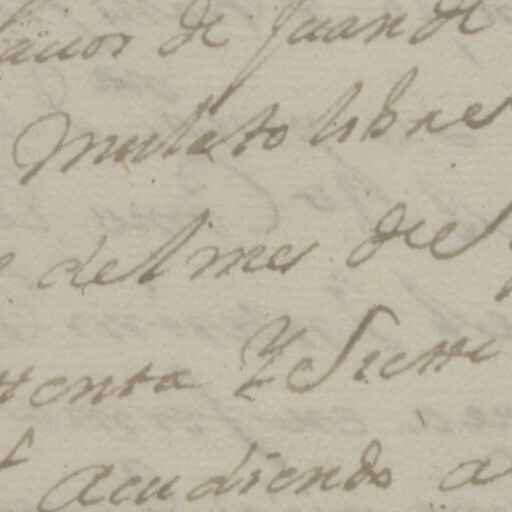 favor de Juan de
Mulato libre
del mes de
tenta Y Siete
acudiendo a